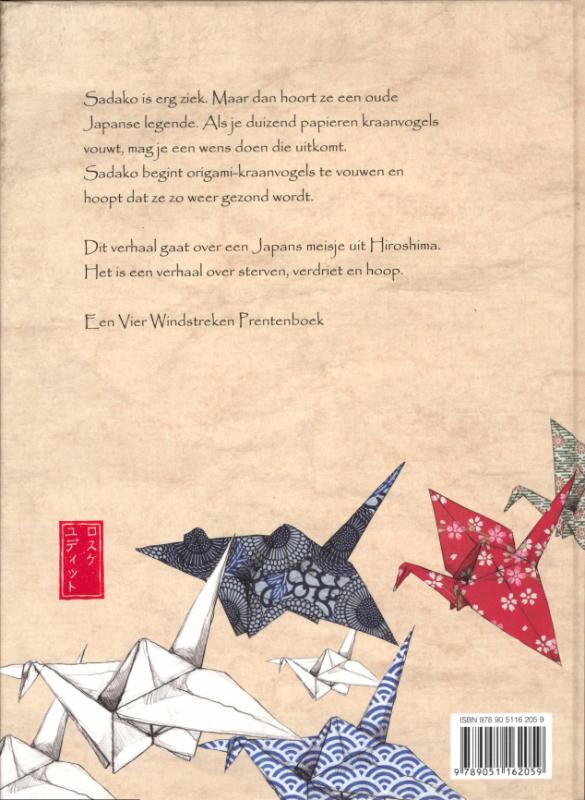 Sadako is erg ziek. Maar dan hoort ze een oude
Japanse legende. Als je duizend papieren kraanvogels
vouwt, mag je een wens doen die uitkomt.
Sadako begint origami-kraanvogels te vouwen en
hoopt dat ze zo weer gezond wordt.
Dit verhaal gaat over een Japans meisje uit Hiroshima.
Het is een verhaal over sterven, verdriet en hoop.
Een Vier Windstreken Prentenboek
ロスケ
ユディット
ISBN 978 90 5116 205 9
9 789051 162059